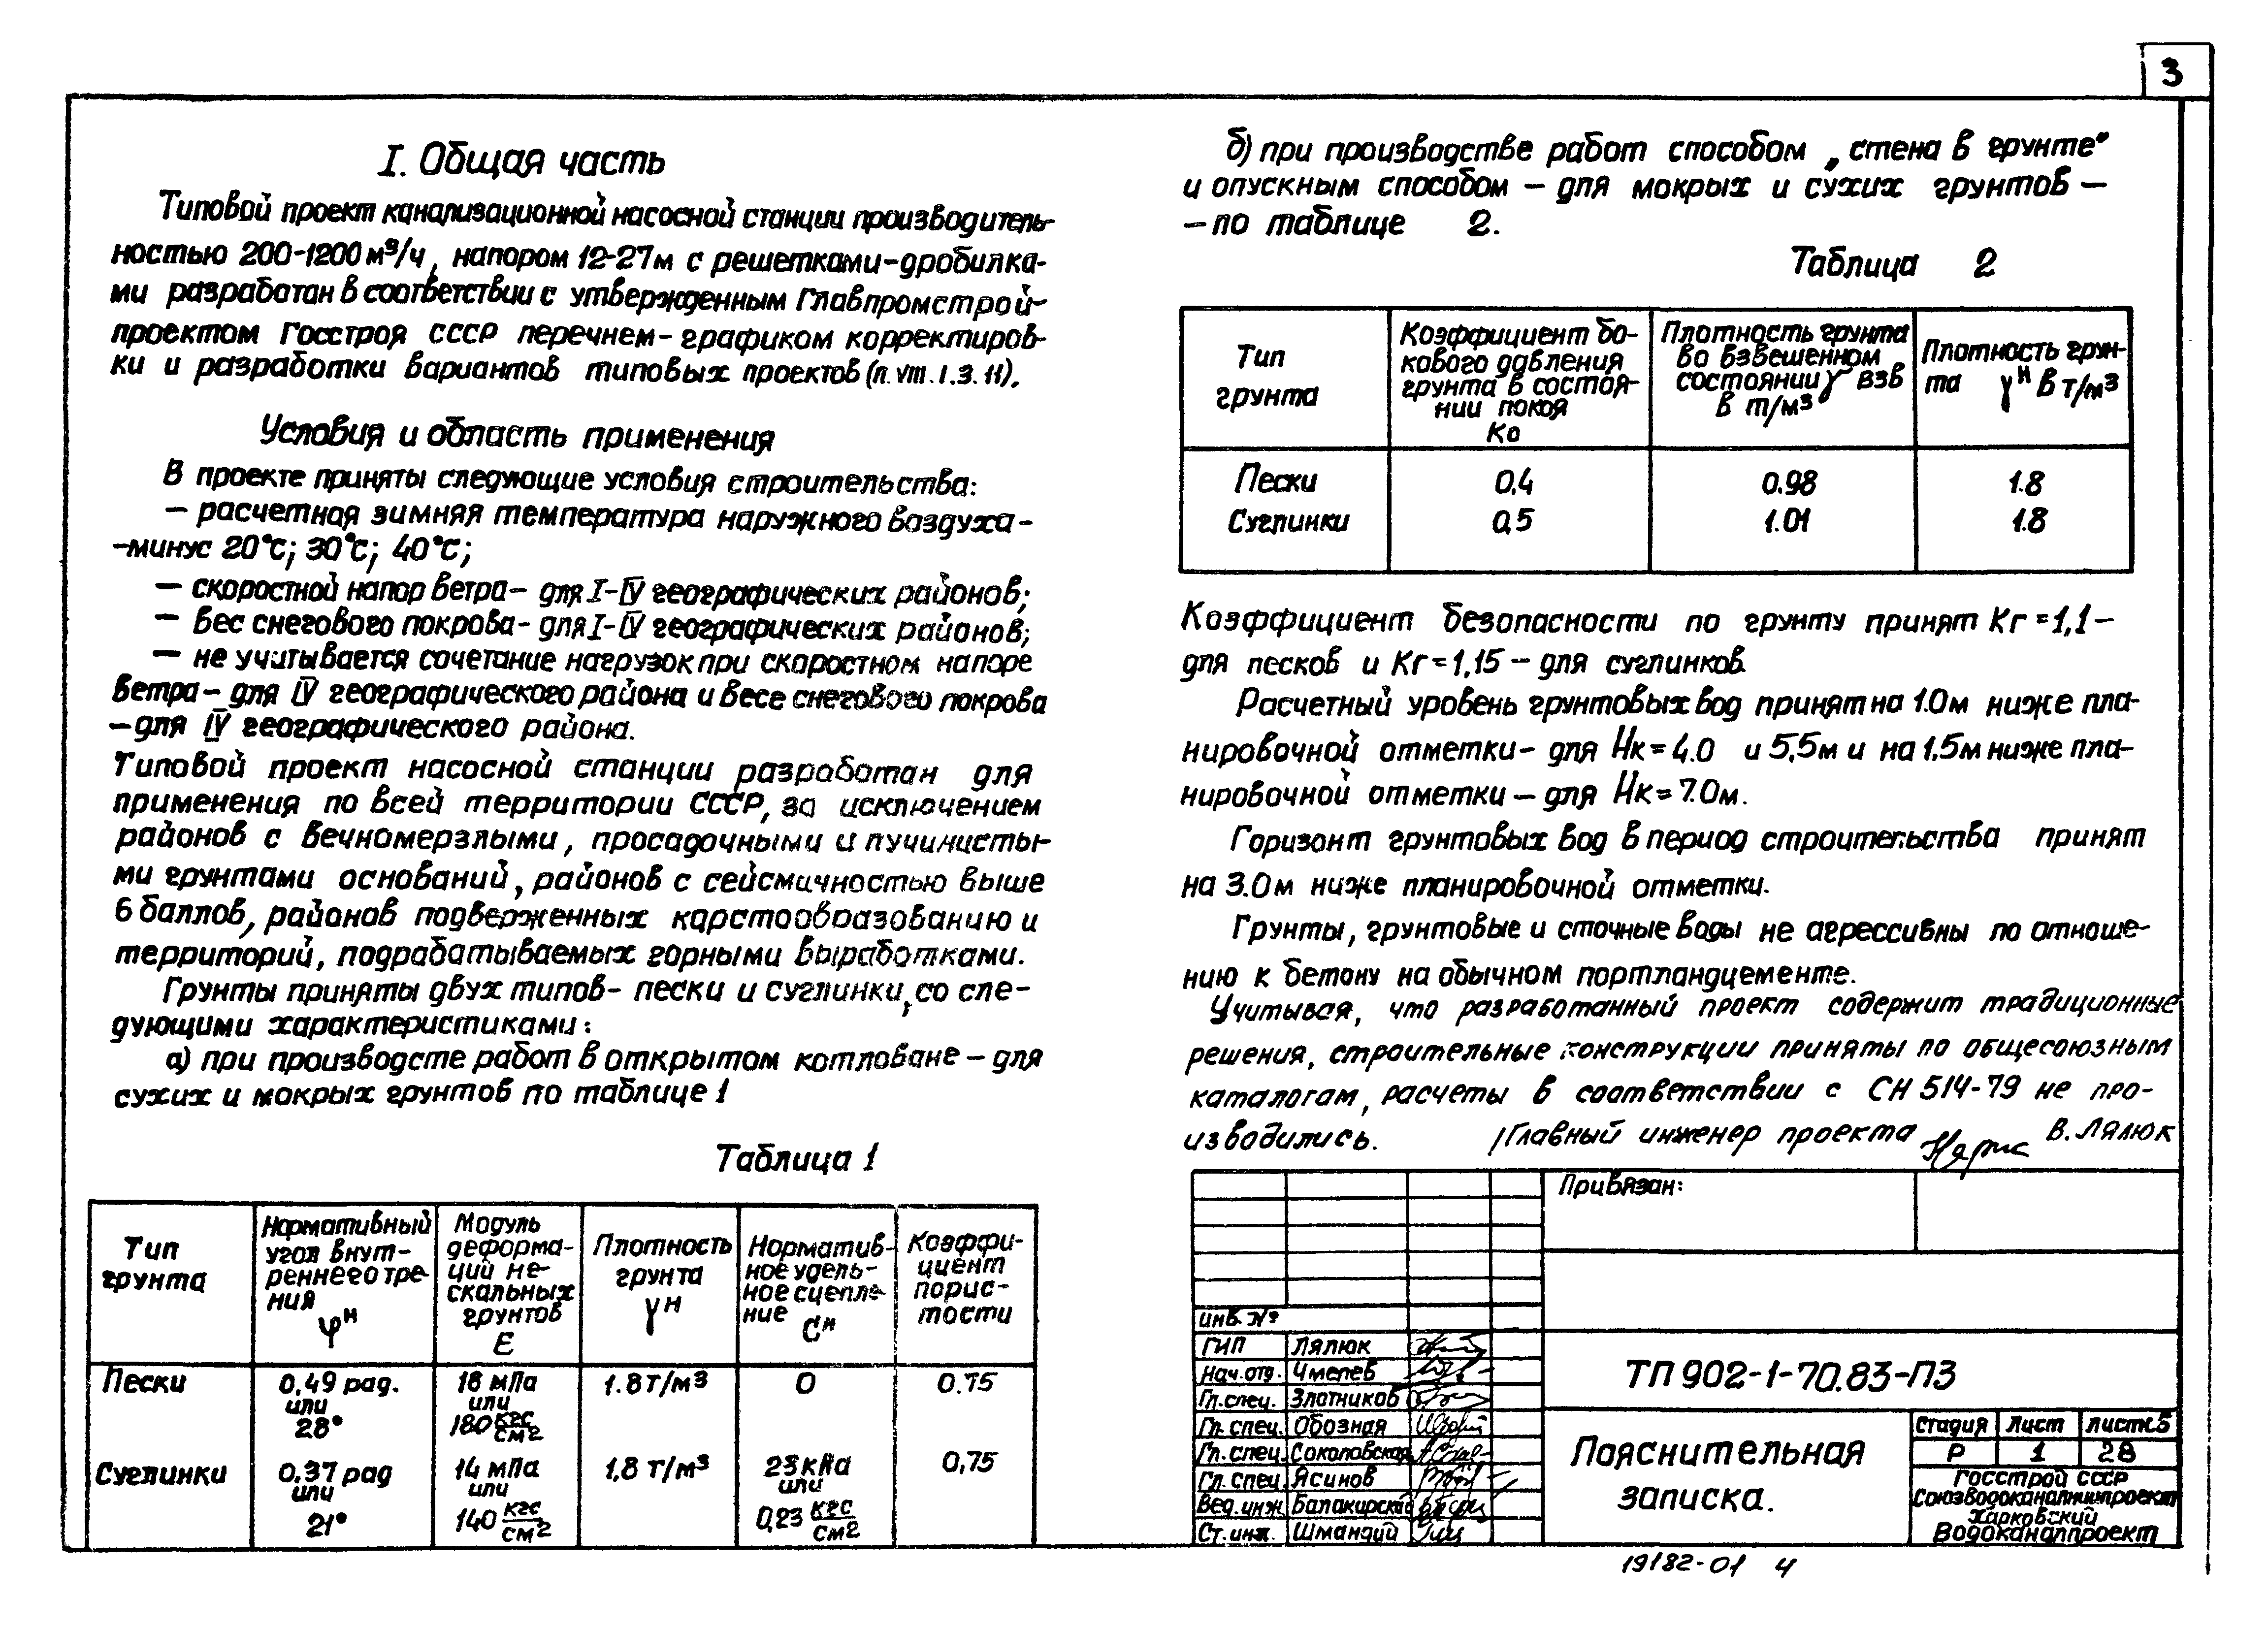 3
I. Общая часть
Типовой проект канализационной насосной станции производитель-
ностью 200-1200 м³/ч, напором 12-27м с решетками-дробилка-
ми разработан в соответствии с утвержденным Главпромстрой-
проектом Госстроя СССР перечнем-графиком корректиров-
ки и разработки вариантов типовых проектов (п. VIII. 1. 3. 11).
Условия и область применения
В проекте приняты следующие условия строительства:
— расчетная зимняя температура наружного воздуха-
-минус 20°С; 30°С; 40°С;
— скоростной напор ветра- для I-IV географических районов;
— вес снегового покрова- для I-IV географических районов;
— не учитывается сочетание нагрузок при скоростном напоре
ветра- для IV географического района и весе снегового покрова
-для IV географического района.
Типовой проект насосной станции разработан для
применения по всей территории СССР, за исключением
районов с вечномерзлыми, просадочными и пучинисты-
ми грунтами оснований, районов с сейсмичностью выше
6 баллов, районов подверженных карстообразованию и
территорий, подрабатываемых горными выработками.
Грунты приняты двух типов- пески и суглинки, со сле-
дующими характеристиками:
а) при производсте работ в открытом котловане - для
сухих и мокрых грунтов по таблице 1
Таблица 1
Тип грунта | Нормативный угол внут-реннего тре-ния φн | Модуль деформа-ций не-скальных грунтов Е | Плотность грунта γн | Норматив-ное удель-ное сцепле-ние Сн | Коэффи-циент порис-тости
Пески | 0,49 рад. или 28° | 18 мПа или 180 кгс/см2 | 1.8т/м³ | 0 | 0.75
Суглинки | 0.37 рад или 21° | 14 мПа или 140 кгс/см2 | 1,8 т/м³ | 23 кПа или 0,23 кгс/см2 | 0,75
б) при производстве работ способом „стена в грунте"
и опускным способом — для мокрых и сухих грунтов —
—по таблице 2.
Таблица 2
Тип грунта | Коэффициент бо-кового давления грунта в состоя-нии покоя Ко | Плотность грунта во взвешенном состоянии γ взв в т/м³ | Плотность грун-та γн в т/м³
Пески | 0.4 | 0.98 | 1.8
Суглинки | 0,5 | 1.01 | 1.8
Коэффициент безопасности по грунту принят Кг=1,1-
для песков и Кг=1,15 - для суглинков.
Расчетный уровень грунтовых вод принят на 1.0м ниже пла-
нировочной отметки- для Нк=4.0 и 5,5м и на 1,5м ниже пла-
нировочной отметки — для Нк=7.0м.
Горизонт грунтовых вод в период строительства принят
на 3.0м ниже планировочной отметки.
Грунты, грунтовые и сточные воды не агрессивны по отноше-
нию к бетону на обычном портландцементе.
Учитывая, что разработанный проект содержит традиционные
решения, строительные конструкции приняты по общесоюзным
каталогам, расчеты в соответствии с СН 514-79 не про-
изводились.
Главный инженер проекта В. Лялюк
Привязан:
инв. №
ГИП Лялюк
Нач.отд. Чмелев
Гл.спец. Златников
Гл. спец. Обозная
Гл. спец. Соколовская
Гл. спец. Ясинов
Вед. инж. Балакирский
Ст. инж. Шмандий
ТП 902-1-70.83-ПЗ
Пояснительная
записка.
Стадия Лист Листов
Р 1 28
Госстрой СССР
Союзводоканалниипроект
Харковский
Водоканалпроект
19182-01 4